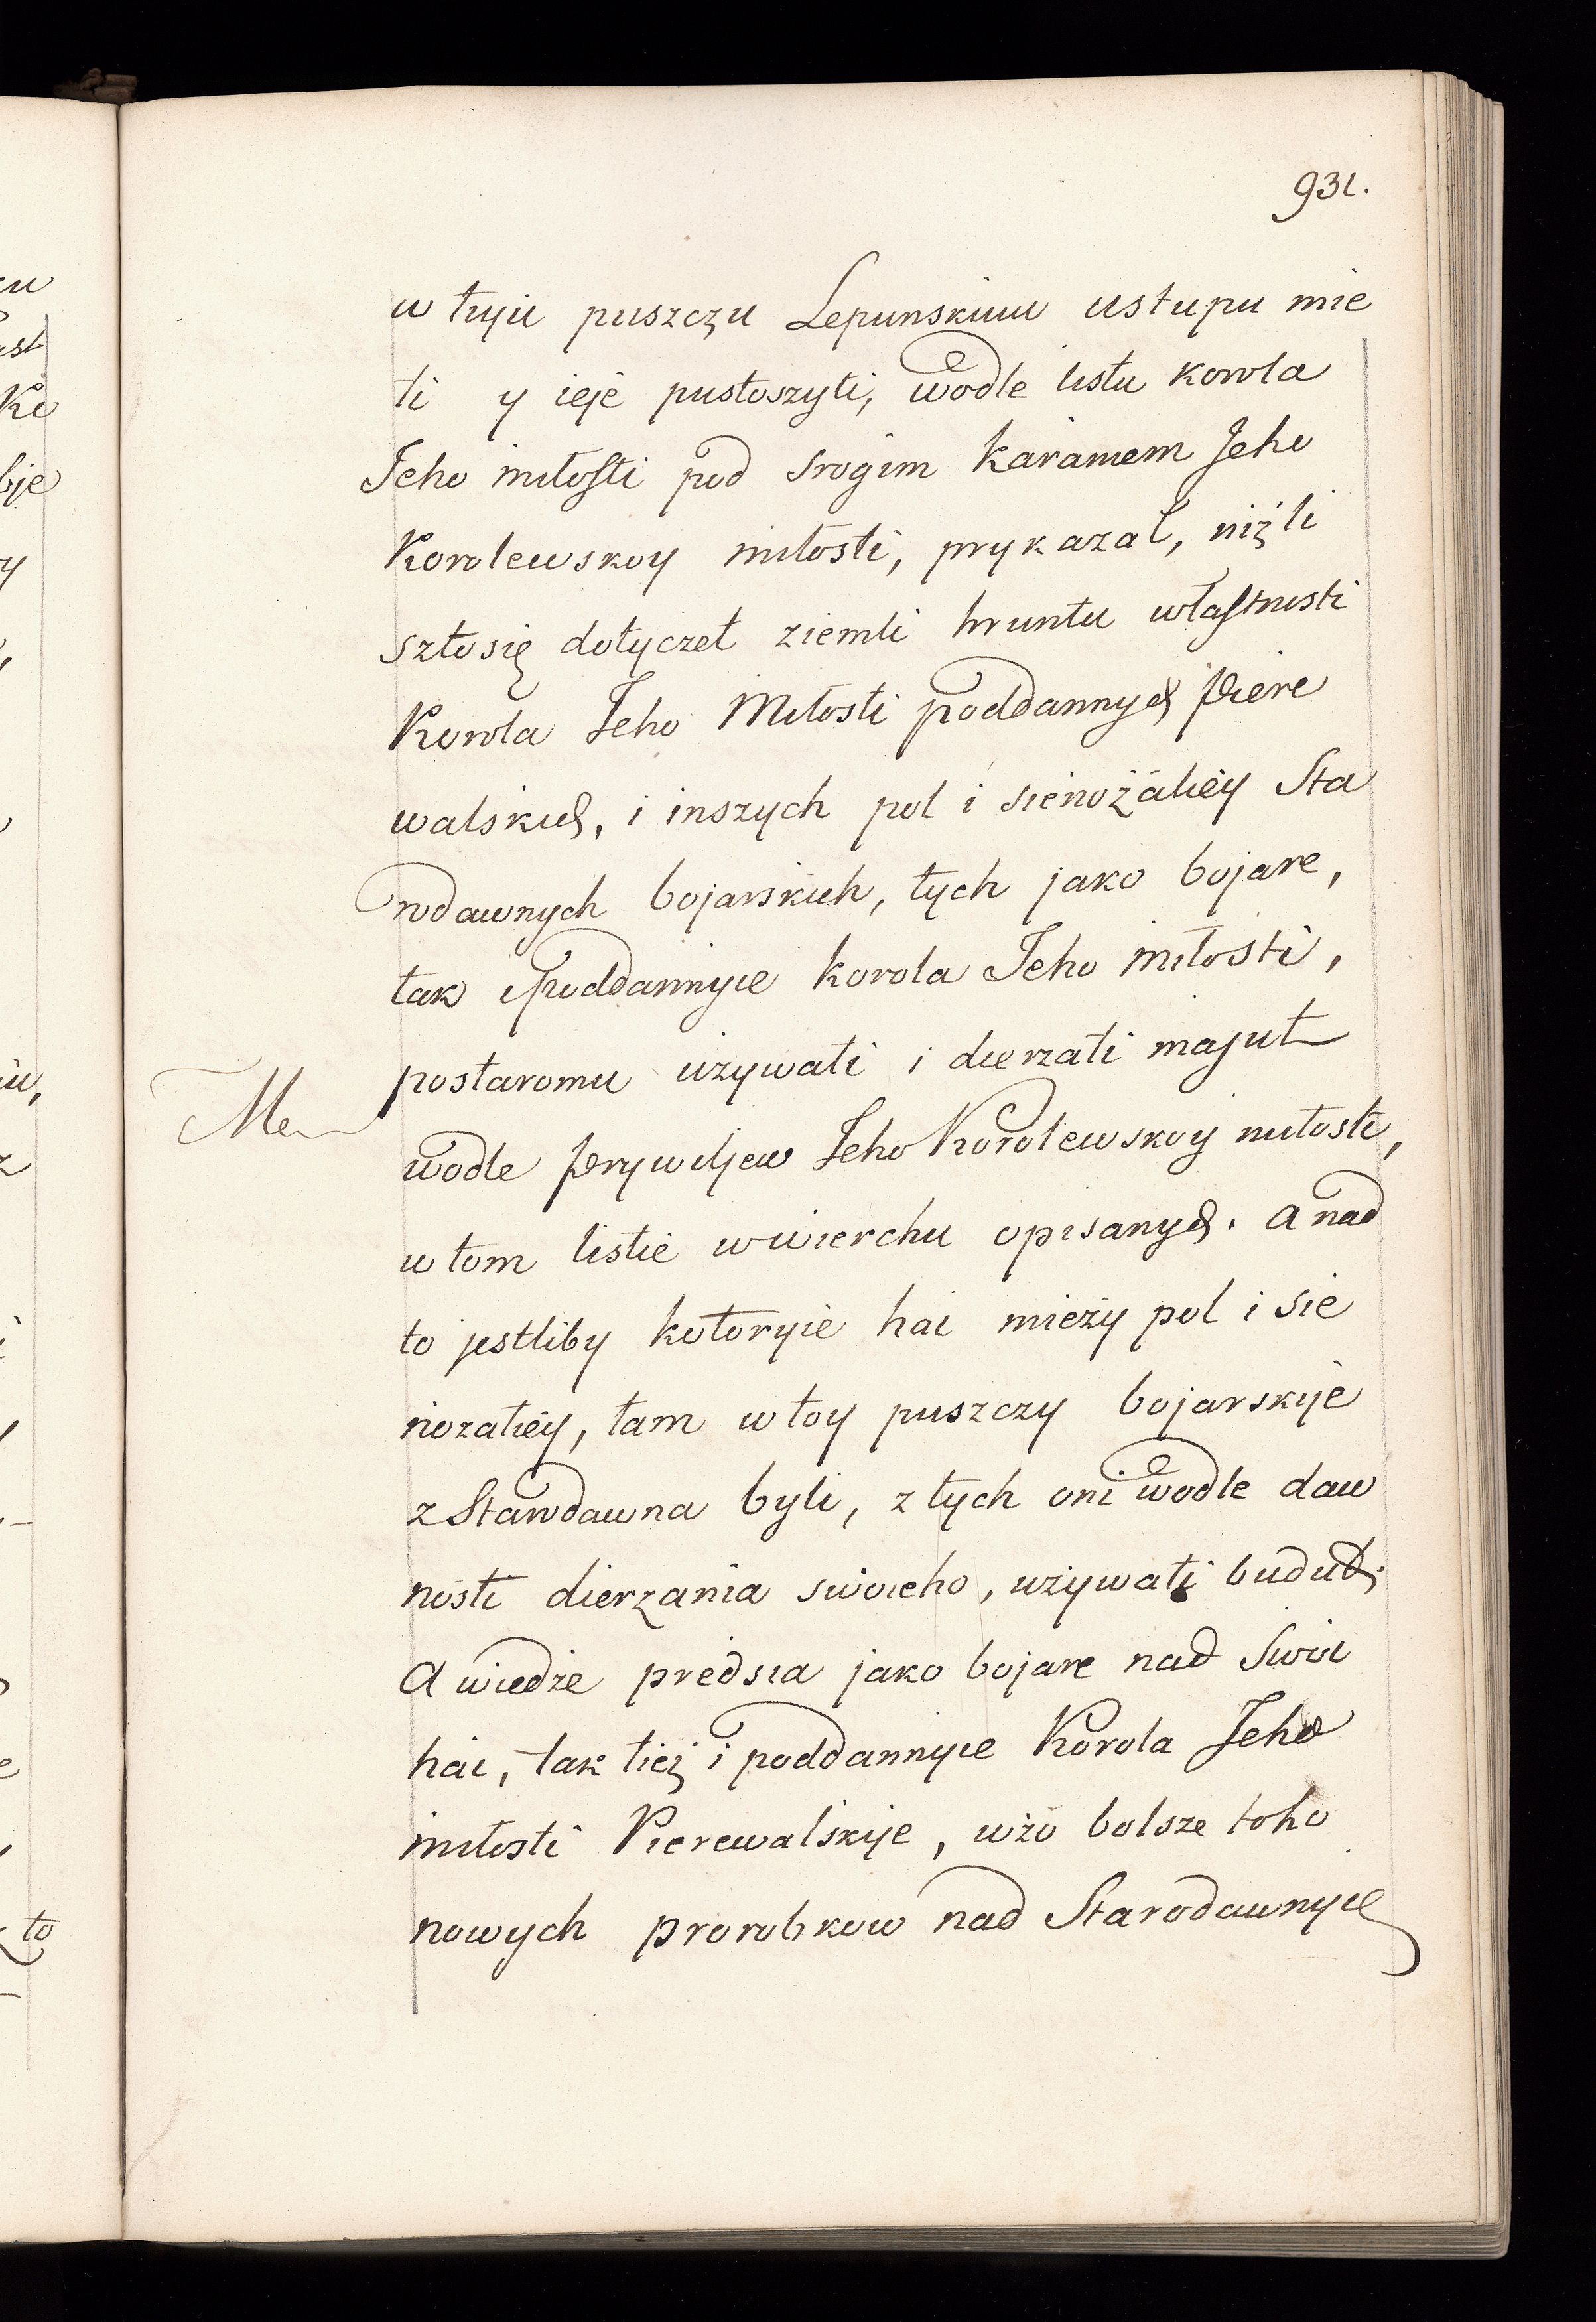 931.
w tuju puszczu Lepunskuiu ustupu mie
ti y ieje pustoszyti, wodle listu korola
Jeho miłosti pod srogim karaniem Jeho
Korolewskoy miłosti, prykazał, niżli
szto się dotyczet ziemli hruntu własnosti
Korola Jeho Miłosti poddannych Piere
walskich, i inszych pol i sienożatiey Sta
rodawnych bojarskich, tych jako bojare,
tak i poddannyie korola Jeho miłosti,
postaromu używati i dierzati majut
wodle prywiljew Jeho Korolewskoy miłosti,
w tom listie wwierchu opisanych. a nad
to jestliby kotoryie hai mieży pol i sie
nozatiey, tam w toy puszczy bojarskije
z Starodawna byli, z tych oni wodle daw
nosti dierżania swoieho, używati budut;
A wiedże predsia jako bojare nad swoi
hai, tak tież i poddannyie Korola Jeho
miłosti Pierewalskije, wżo bolsze toho
nowych prorobkow nad Starodawnyie